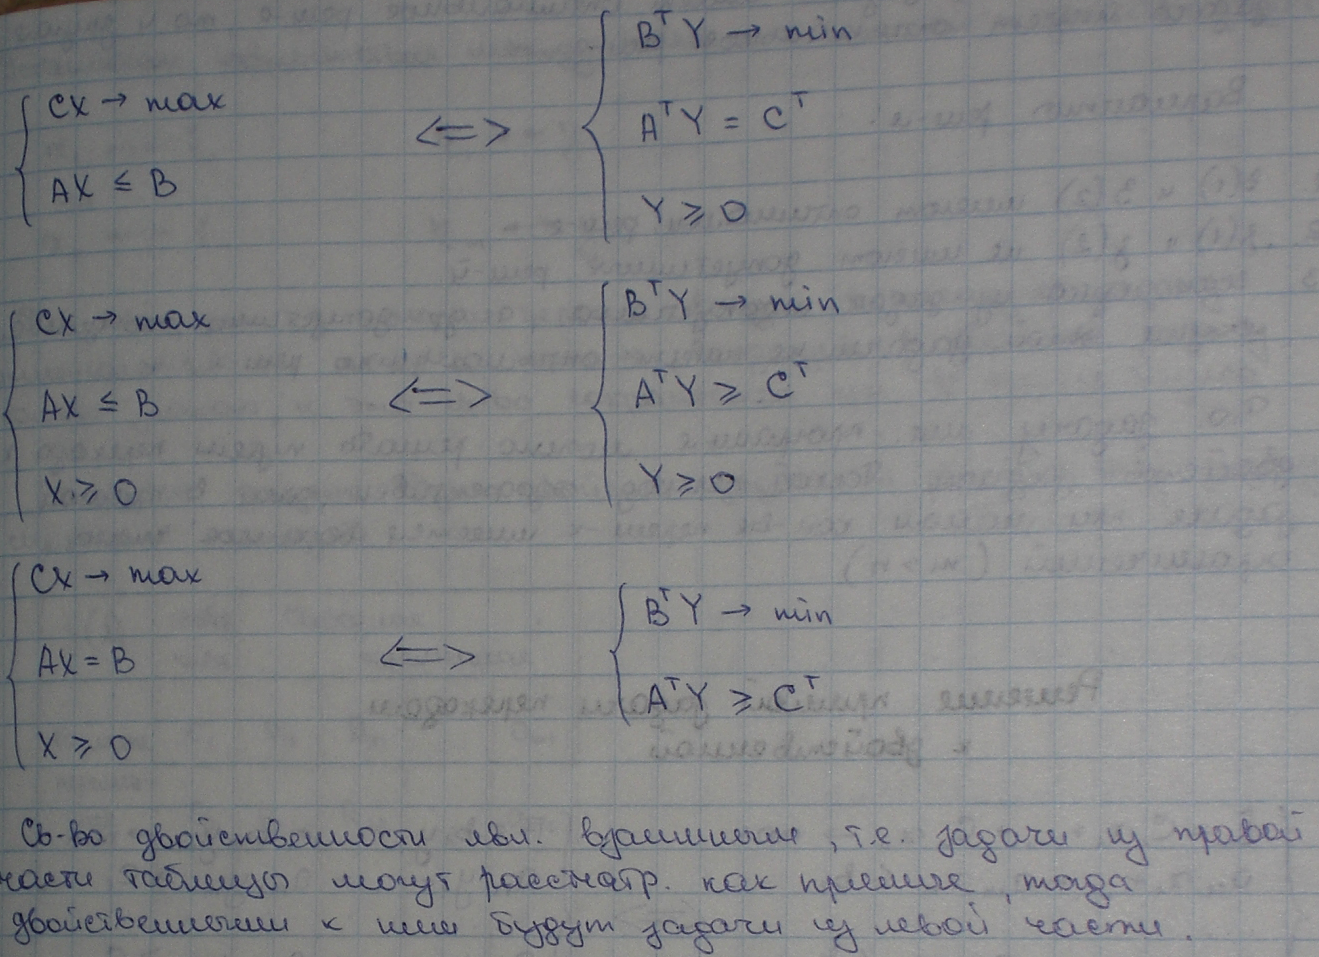 B^T Y → min
CX → max
<=>
A^T Y = C^T
AX ≤ B
Y ≥ 0
CX → max
B^T Y → min
AX ≤ B
<=>
A^T Y ≥ C^T
X ≥ 0
Y ≥ 0
CX → max
B^T Y → min
AX = B
<=>
A^T Y ≥ C^T
X ≥ 0
Св-во двойственности явл. взаимным, т.е. задачи из правой
части таблицы могут рассматр. как прямые, тогда
двойственными к ним будут задачи из левой части.